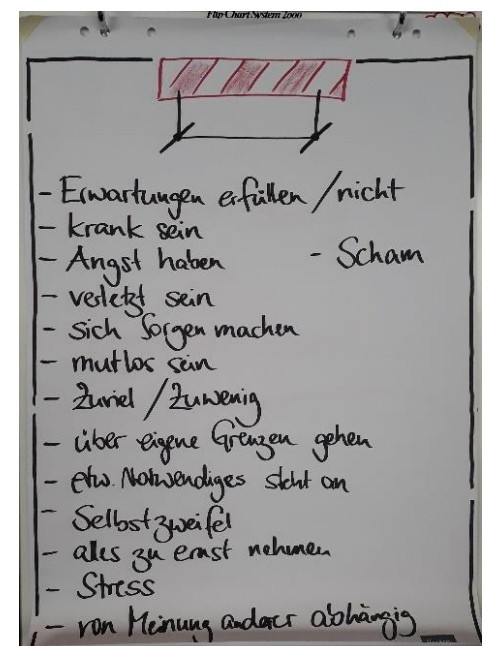 Flip Chart System 2000
- Erwartungen erfüllen / nicht
- krank sein
- Angst haben - Scham
- verletzt sein
- sich Sorgen machen
- mutlos sein
- Zuviel / Zuwenig
- über eigene Grenzen gehen
- etw. Notwendiges steht an
- Selbstzweifel
- alles zu ernst nehmen
- Stress
- von Meinung anderer abhängig